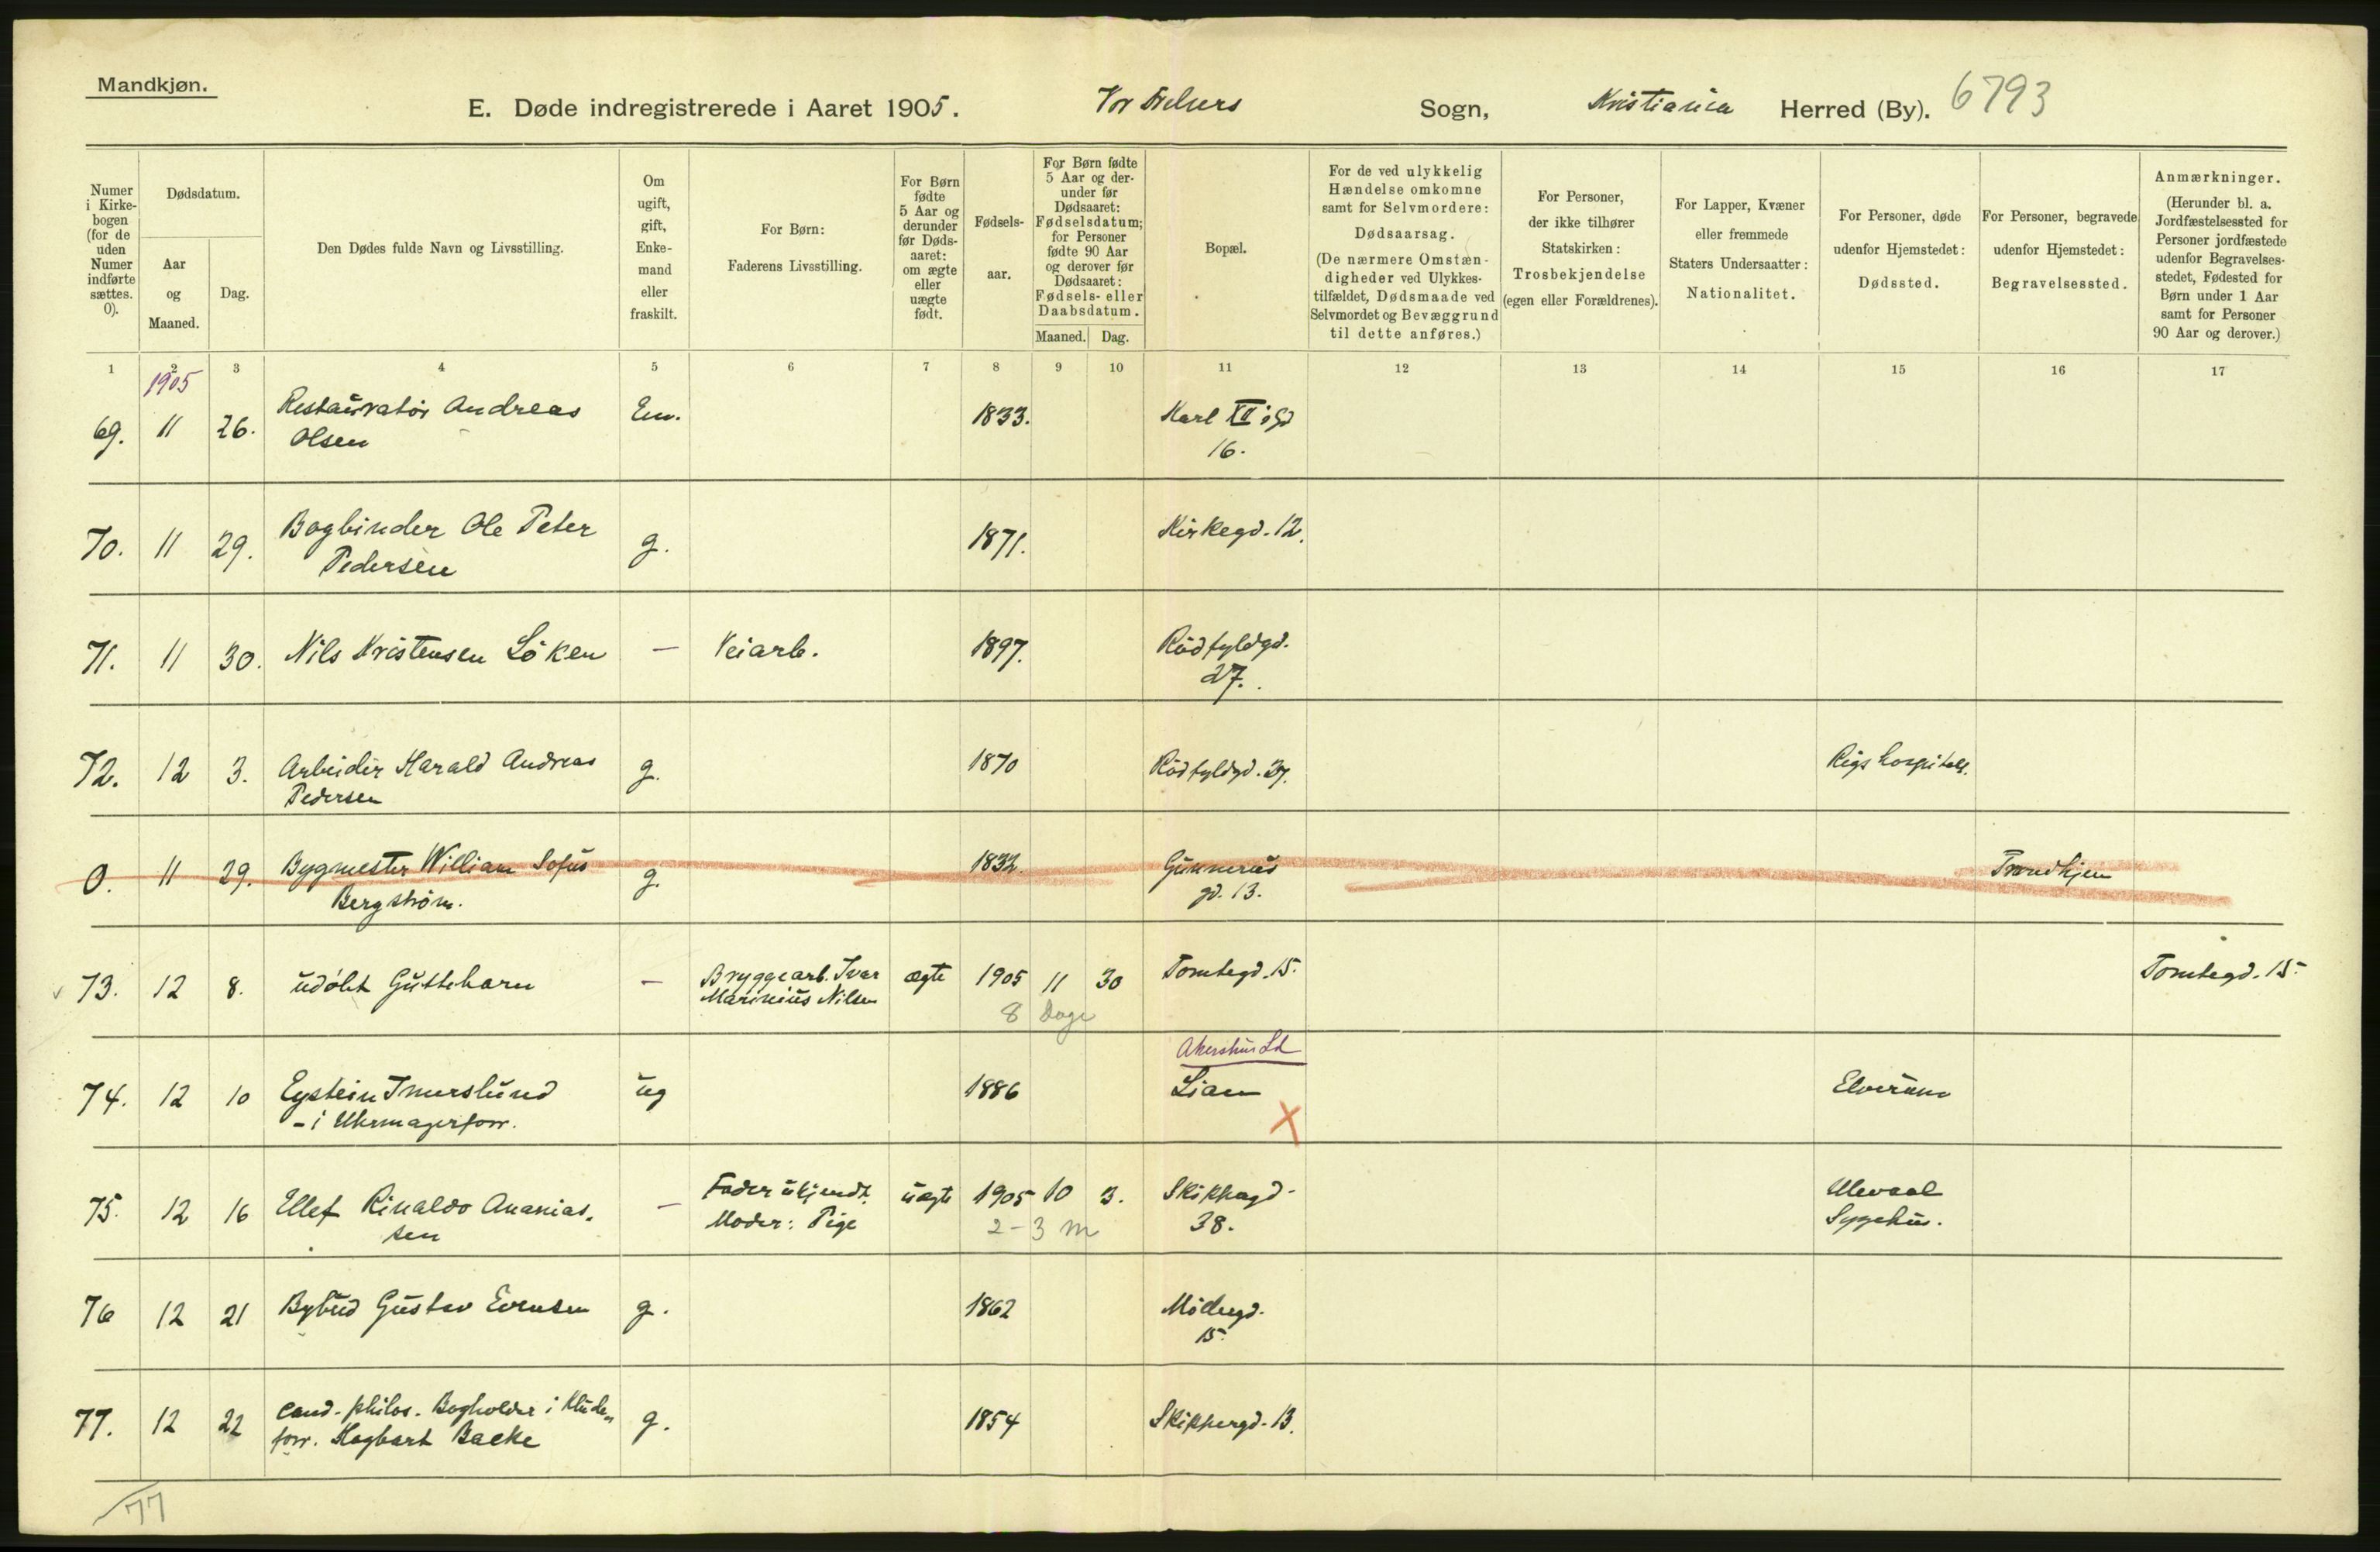 Mandkjøn.
E. Døde indregistrerede i Aaret 1905. Vor Frelsers Sogn, Kristiania Herred (By). 6793
Numer
i Kirke-
bogen
(for de
uden
Numer
indførte
sættes.
0).
Dødsdatum.
Aar
og
Maaned.
Dag.
Den Dødes fulde Navn og Livsstilling.
Om
ugift,
gift,
Enke-
mand
eller
fraskilt.
For Børn:
Faderens Livsstilling.
For Børn
fødte
5 Aar og
derunder
før Døds-
aaret:
om ægte
eller
uægte
født.
Fødsels-
aar.
For Børn fødte
5 Aar og der-
under før
Dødsaaret:
Fødselsdatum;
for Personer
fødte 90 Aar
og derover før
Dødsaaret:
Fødsels- eller
Daabsdatum.
Maaned. Dag.
Bopæl.
For de ved ulykkelig
Hændelse omkomne
samt for Selvmordere:
Dødsaarsag.
(De nærmere Omstæn-
digheder ved Ulykkes-
tilfældet, Dødsmaade ved
Selvmordet og Bevæggrund
til dette anføres.)
For Personer,
der ikke tilhører
Statskirken:
Trosbekjendelse
(egen eller Forældrenes).
For Lapper, Kvæner
eller fremmede
Staters Undersaatter:
Nationalitet.
For Personer, døde
udenfor Hjemstedet:
Dødssted.
For Personer, begravede
udenfor Hjemstedet:
Begravelsessted.
Anmærkninger.
(Herunder bl. a.
Jordfæstelsessted for
Personer jordfæstede
udenfor Begravelses-
stedet, Fødested for
Børn under 1 Aar
samt for Personer
90 Aar og derover.)
1 2 3 4 5 6 7 8 9 10 11 12 13 14 15 16 17
1905
69. 11 26. Restauratør Andreas Em. 1833. Karl XII's gd
Olsen 16.
70. 11 29. Bogbinder Ole Peter g. 1871. Kirkegd. 12.
Pedersen
71. 11 30. Nils Kristensen Löken — Veiarb. 1897. Rödfyldgd.
27.
72. 12 3. Arbeider Harald Andreas g. 1870 Rödfyldgd. 27. Rigshospitalet.
Pedersen
0. 11 29. Bygmester William Sofus g. 1832. Gunnerus Trondhjem
Bergström. gd. 13.
73. 12 8. udöbt Guttebarn — Bryggearb. Ivar ægte 1905 11 30 Tomtegd. 15. Tomtegd. 15.
Marinius Nilsen
8 Dage
Akershus Ld
74. 12 10 Eystein Imerslund ug 1886 Lian X Elverum
- i Uhrmagerforr.
75. 12 16 Ellef Rinaldo Ananias- — Fader ukjendt. uægte 1905 10 3. Skippergd. Ulevaal
sen Moder: Pige 2-3 m 38. Sygehus.
76 12 21 Bybud Gustav Evensen g. 1862 Möllergd.
15.
77. 12 22 cand. philos. Bogholder i Klæde- g. 1854 Skippergd. 13.
forr. Hagbart Backe
77